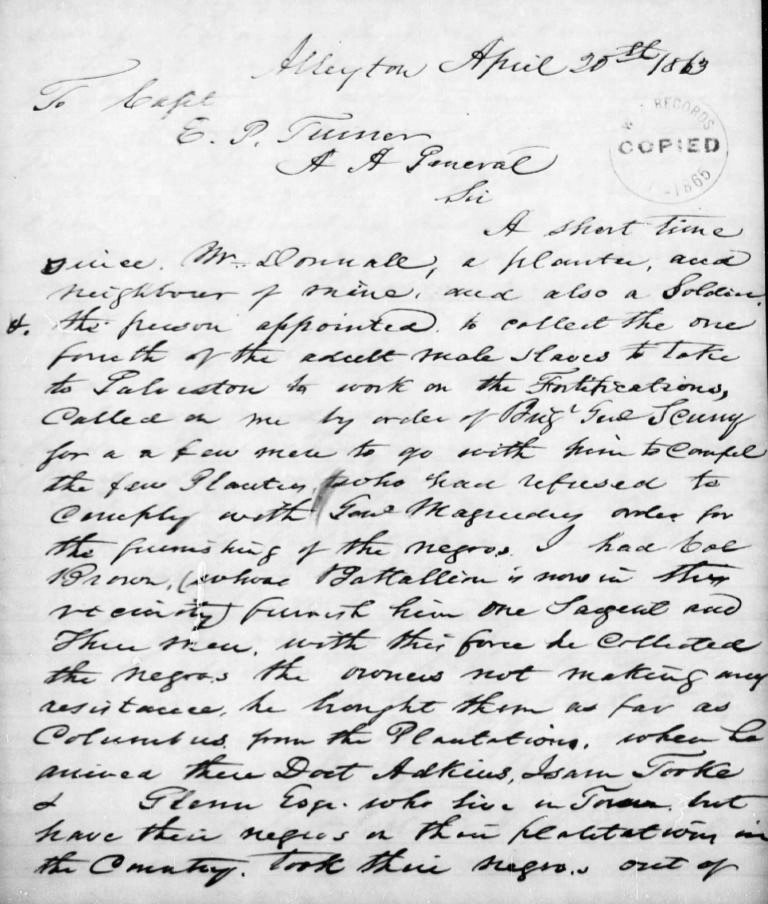 Alleyton April 20th 1863
To Capt
E. P. Turner
A A General
Sir
RECORDS
COPIED
1865
A short time
since, Mr. Donnall, a planter, and
neighbour of mine, and also a Soldier,
&. the person appointed to collect the one
fourth of the adult male slaves to take
to Galveston to work on the Fortifications,
Called on me by order of Brigr Genl Scurry
for a a few men to go with him to Compel
the few Planters who had refused to
Comply with Genl Magruders order for
the furnishing of the negros. I had Col
Brown, (whose Battallion is now in this
vicinity) furnish him one Sargent and
Three men, with this force he Collected
the negros the owners not making any
resistance, he brought them as far as
Columbus from the Plantations, when he
arrived there Doct Adkins, Isam Tooke
& Glenn Esqr. who live in Town, but
have their negros on their platitations in
the Country, took their negros out of